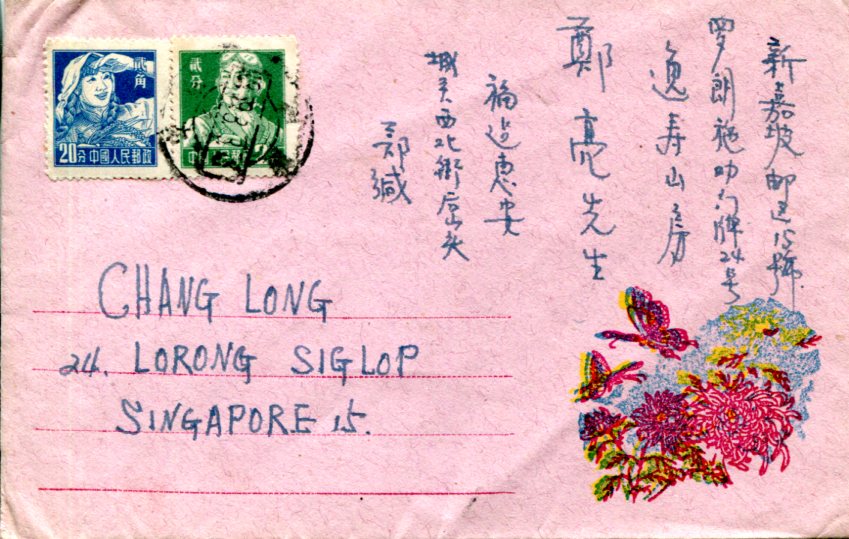 贰角
20分中國人民郵政
贰分
新嘉坡邮区15號
罗朗施叻门牌24号
逸寿山房
鄭亮先生
福建惠安
城关西北街
郑缄
CHANG LONG
24. LORONG SIGLOP
SINGAPORE 15.